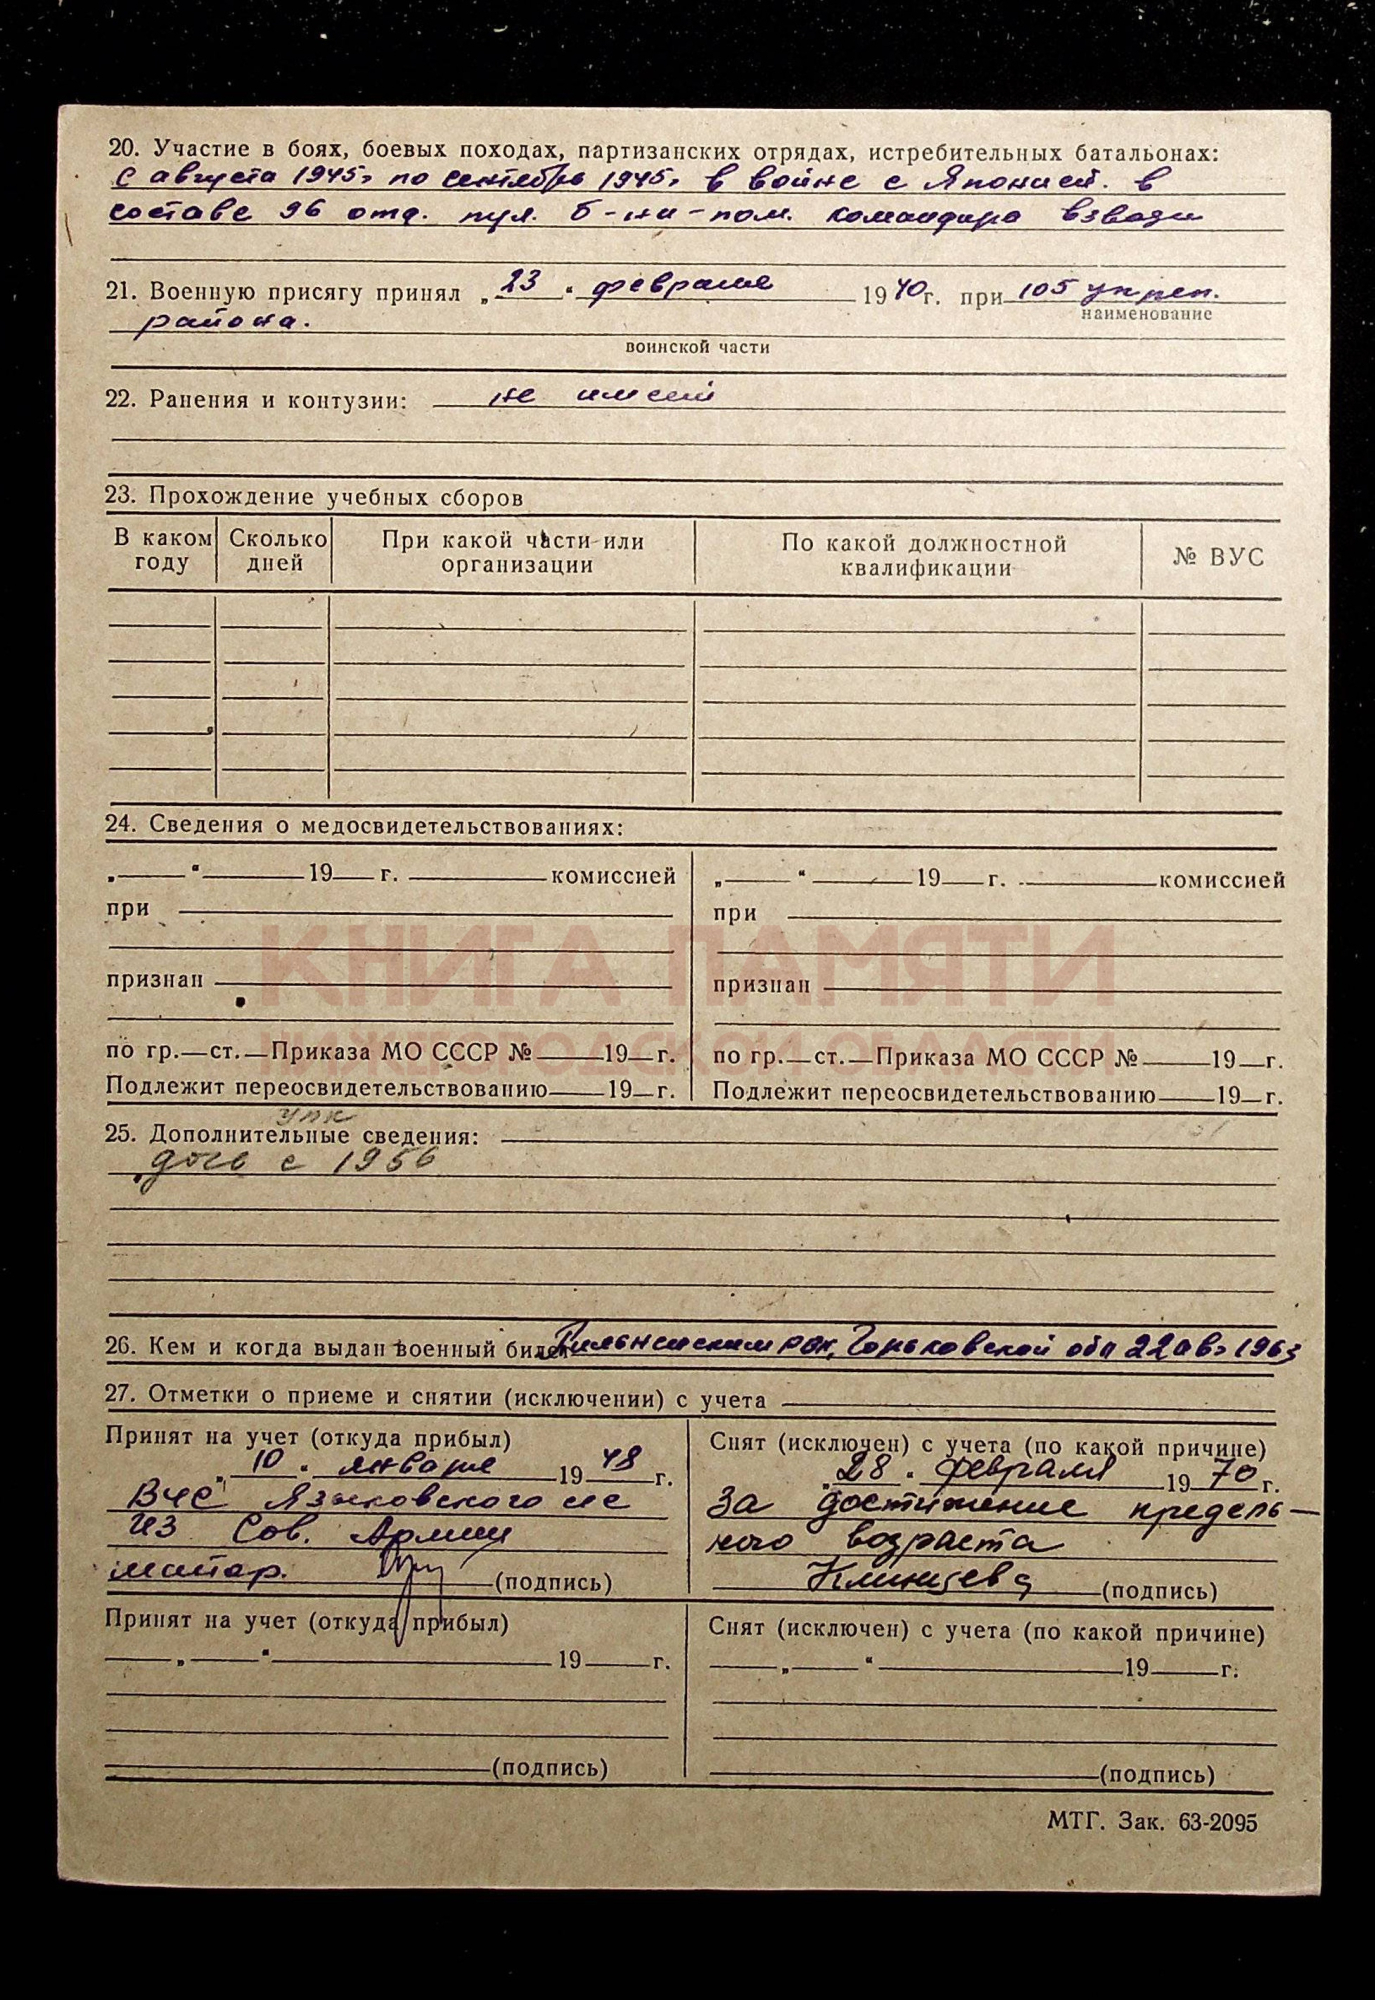 20. Участие в боях, боевых походах, партизанских отрядах, истребительных батальонах:
с августа 1945г по сентябрь 1945г в войне с Японией. в
составе 96 отд. пул. б-на - пом. командира взвода
21. Военную присягу принял „23“ февраля 1940г. при 105 укреп.
наименование
района.
воинской части
22. Ранения и контузии: не имеет
23. Прохождение учебных сборов
В каком году Сколько дней При какой части или организации По какой должностной квалификации № ВУС
КНИГА ПАМЯТИ
НИЖЕГОРОДСКОЙ ОБЛАСТИ
24. Сведения о медосвидетельствованиях:
„ “ 19 г. комиссией „ “ 19 г. комиссией
при при
признан признан
по гр. ст. Приказа МО СССР № 19 г. по гр. ст. Приказа МО СССР № 19 г.
Подлежит переосвидетельствованию 19 г. Подлежит переосвидетельствованию 19 г.
25. Дополнительные сведения:
дочь с 1956
26. Кем и когда выдан военный билет Пильнинским РВК, Горьковской обл 22 ав. 1963
27. Отметки о приеме и снятии (исключении) с учета
Принят на учет (откуда прибыл) Снят (исключен) с учета (по какой причине)
„10“ января 1948 г. „28“ февраля 1970 г.
ВУС Языковского с/с за достижение предель-
из Сов. Армии ного возраста
(подпись) Клинцева (подпись)
Принят на учет (откуда прибыл) Снят (исключен) с учета (по какой причине)
„ “ 19 г. „ “ 19 г.
(подпись) (подпись)
МТГ. Зак. 63-2095